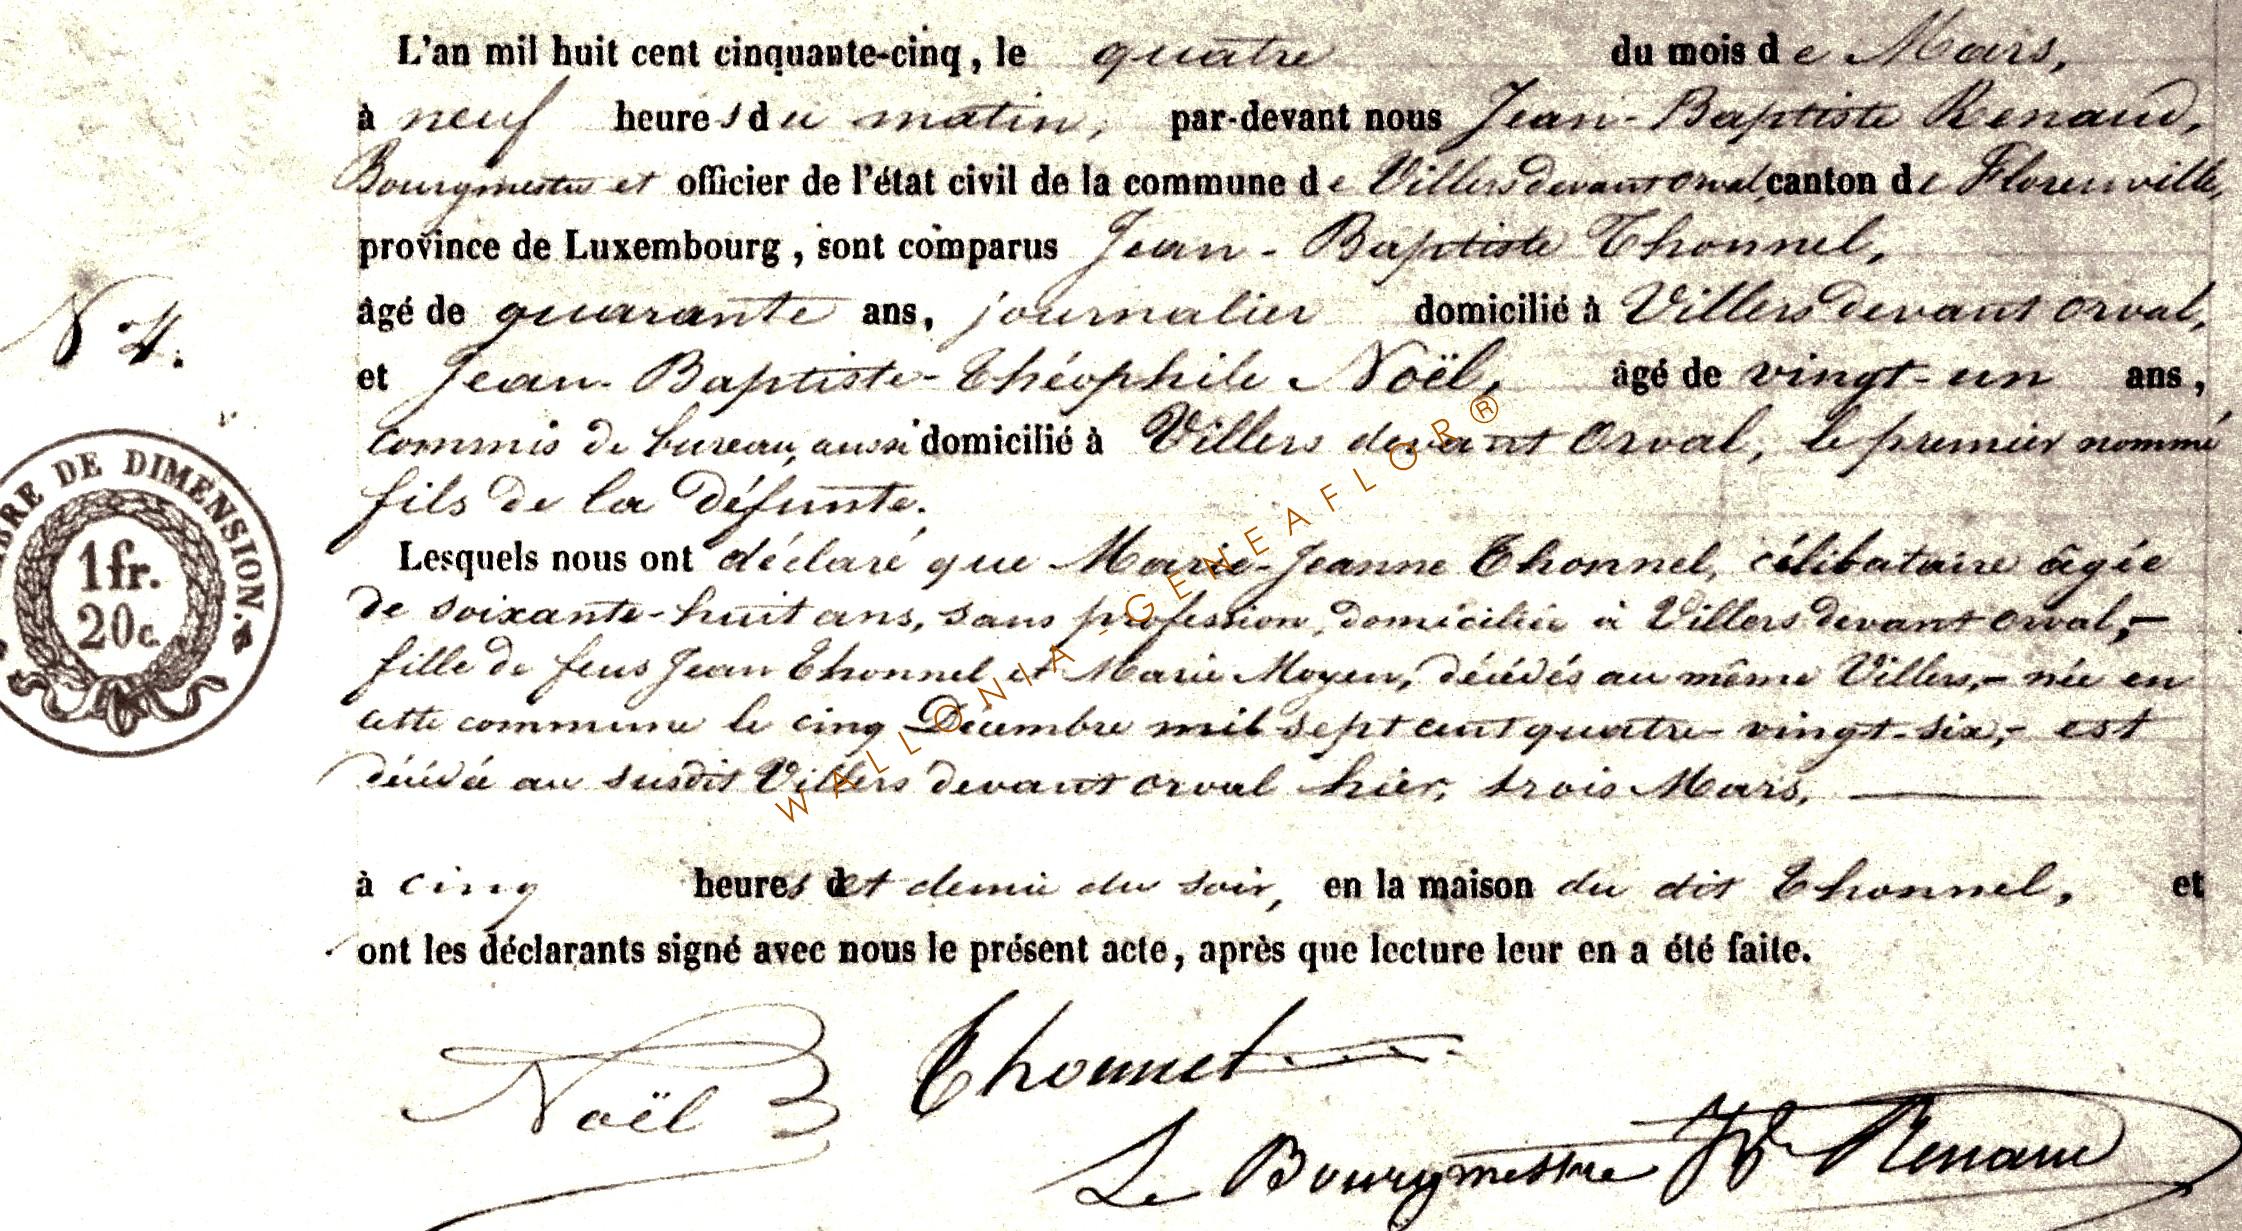 L'an mil huit cent cinquante-cinq, le quatre du mois de Mars,
à neuf heures du matin, par-devant nous Jean-Baptiste Renaud,
Bourgmestre et officier de l'état civil de la commune de Villers devant orval, canton de Florenville,
province de Luxembourg, sont comparus Jean-Baptiste Thonnel,
âgé de quarante ans, journalier domicilié à Villers devant orval,
N° 4.
et Jean-Baptiste-Théophile Noël, âgé de vingt-un ans,
commis de bureau, aussi domicilié à Villers devant Orval, le premier nommé
fils de la défunte.
DE DIMENSION.
1fr.
20c.
Lesquels nous ont déclaré que Marie-Jeanne Thonnel, célibataire âgée
de soixante-huit ans, sans profession, domiciliée à Villers devant orval,-
fille de feus Jean Thonnel et Marie Moyen, décédés au même Villers,- née en
cette commune le cinq Décembre mil sept cent quatre-vingt-six,- est
décédée au susdit Villers devant orval hier, trois Mars,
à cinq heures et demie du soir, en la maison du dit Thonnel, et
ont les déclarants signé avec nous le présent acte, après que lecture leur en a été faite.
Noël Thonnel
Le Bourgmestre Renaud
WALLONIA-GENEAFLOR®